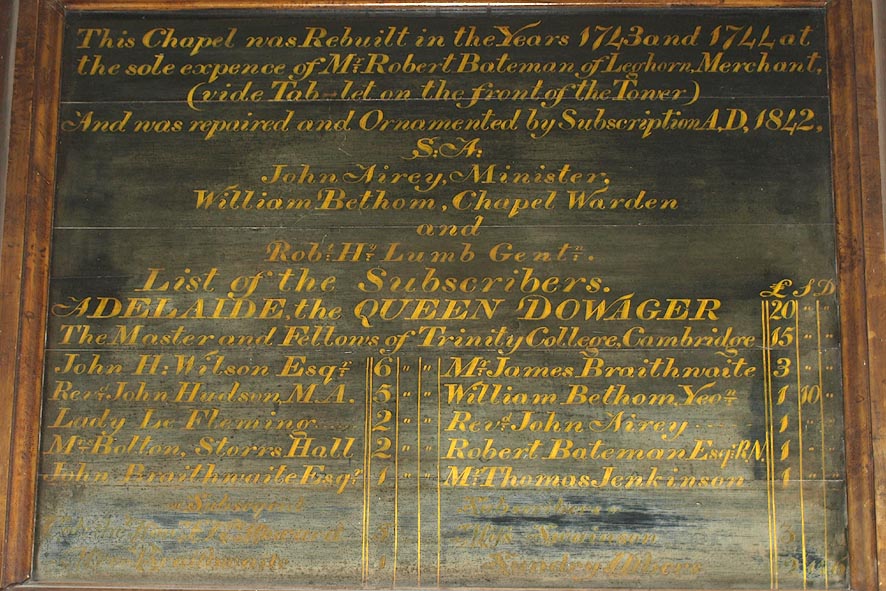 This Chapel was Rebuilt in the Years 1743 and 1744 at
the sole expence of Mr. Robert Bateman of Leghorn, Merchant,
(vide Tab-let on the front of the Tower)
And was repaired and Ornamented by Subscription A,D, 1842,
S: A:
John Airey, Minister,
William Bethom, Chapel Warden
and
Robt. Hy. Lumb Gentn.
List of the Subscribers.
£ S D
ADELAIDE, the QUEEN DOWAGER 20 " "
The Master and Fellows of Trinity College, Cambridge 15 " "
John H: Wilson Esqr. 6 " " Mr. James Braithwaite 3 " "
Revd. John Hudson, M.A. 5 " " William Bethom, Yeon. 1 10 "
Lady Le Fleming 2 " " Revd. John Airey 1 " "
Mrs. Bolton, Storrs Hall 2 " " Robert Bateman Esqr. R.N. 1 " "
John Braithwaite Esqr. 1 " " Mr. Thomas Jenkinson 1 " "
Subscribers
3
Sundry Others